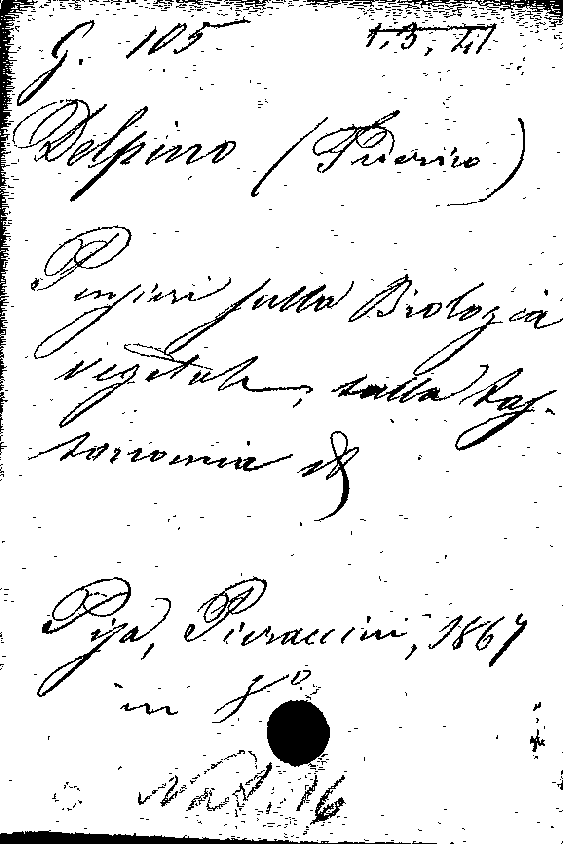 G. 105 1.3.41
Delpino (Federico)
Pensieri sulla Biologia
vegetale, sulla tas-
sonomia &
Pisa, Pieraccini, 1867
in 8°
Nat. 16